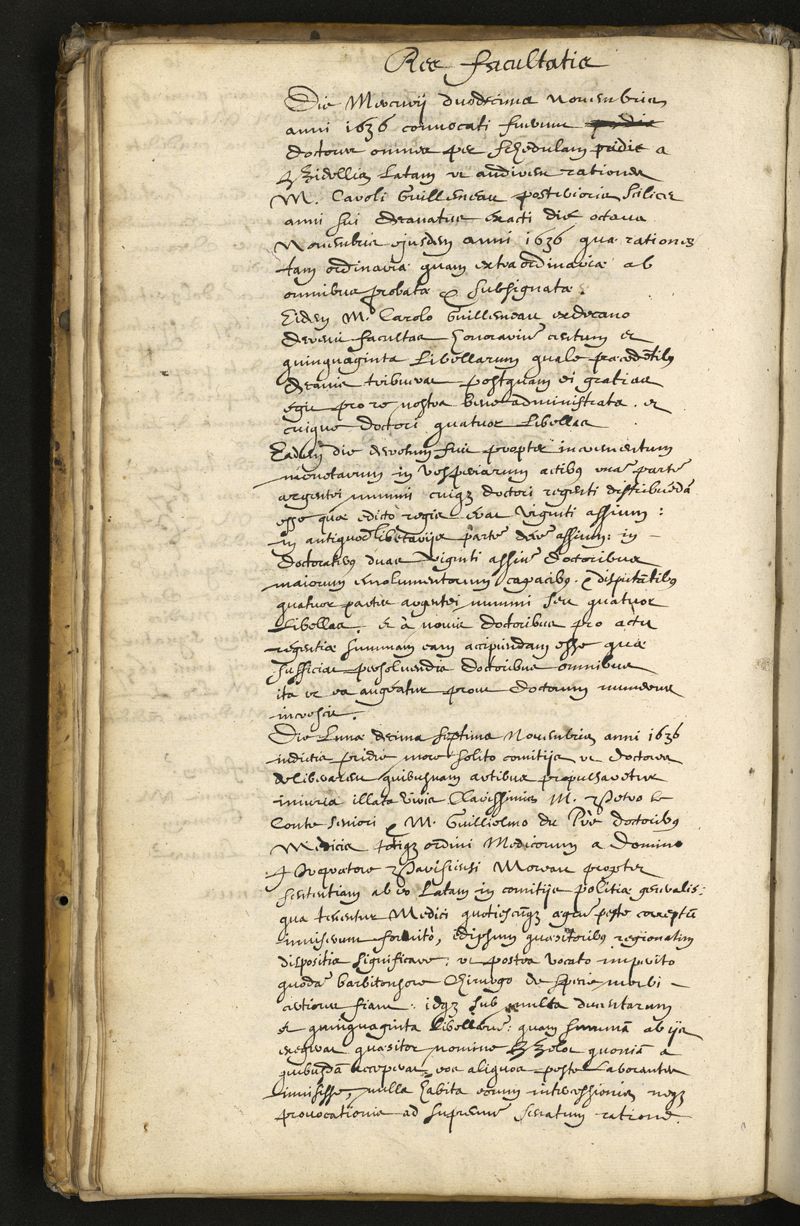 Res facultatis
Die Mercurij duodecima novembris
anni 1636 convocati fuerunt pridie
doctores omnes per schedulam pridie a
Bidellis latam ut audirent rationes
M. Caroli Guillemeau posterioris scilicet
anni sui decanatus exacti die octava
Novembris ejusdem anni 1636 quae rationes
tam ordinariae quam extraordinariae ab
omnibus probatae & subsignatae.
Eidem M. Carolo Guillemeau exdecano
decrevit facultas honorarium centum et
quinquaginta libellarum quale praecedentibus
decanis tribuerat postquam ei gratias
egit pro re nostra bene administrata. et
cuique doctori quatuor libellas
Eadem die decretum fuit propter incrementum
monetarum in vesperiarum actibus unam partem
argentei nummi cuiqz doctori regenti distribuendam
esse quae edicto regis erat viginti assium:
in antiquodlibetarijs partem decem assium: in
doctoratibus duas viginti assium doctoribus
maiorum emolumentorum capacibus. & disputantibus
quatuor partes argentei nummi seu quatuor
libellas. et à novis doctoribus pro actu
regentiae summam eam accipiendam esse quae
sufficiat persolvendis doctoribus omnibus
ita ut ea augeatur prout doctorum numerus
increscit.
Die Lunae decima septima Novembris anni 1636
indictis pridie more solito comitijs ut doctores
deliberarent quibusnam artibus propulsaretur
iniuria illata viris clarissimis M. Petro le
Conte seniori & M. Guillielmo du Pré doctoribus
Medicis totiqz ordini Medicorum a Domino
Propraetore Parisiensi Moreau propter
sententiam ab eo latam in comitijs politiae generalis:
qua tenentur Medici quotiescunqz aegrum peste correptum
inviserunt fortuitò, idipsum quaesitoribus regionatim
dispositis significare: ut postea vocato imperito
quodam barbitonsore Chirurgo de specie morbi
certiores fiant: idqz sub multa ducentarum
et quinquaginta libellarum: quam summam ab ijs
exegerat quaesitor nomine quoniam a
quibusdam acceperat eos aliquos peste laborantes
invisisse, nulla habita eorum intercessionis neqz
provocationis ad supremum senatum ratione.